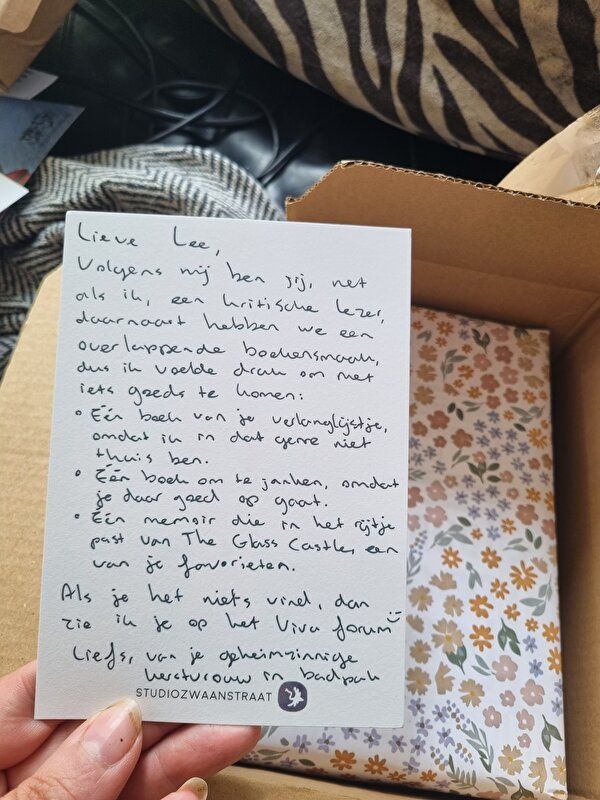 Lieve Lee,
Volgens mij ben jij, net
als ik, een kritische lezer,
daarnaast hebben we een
overlappende boekensmaak,
dus ik voelde druk om met
iets goeds te komen:
• Eén boek van je verlanglijstje,
omdat ik in dat genre niet
thuis ben.
• Één boek om te janken, omdat
je daar goed op gaat.
• Één memoir die in het rijtje
past van The Glass Castle, een
van je favorieten.
Als je het niets vind, dan
zie ik je op het Viva forum
Liefs, van je geheimzinnige
kerstvrouw in badpak
STUDIOZWAANSTRAAT